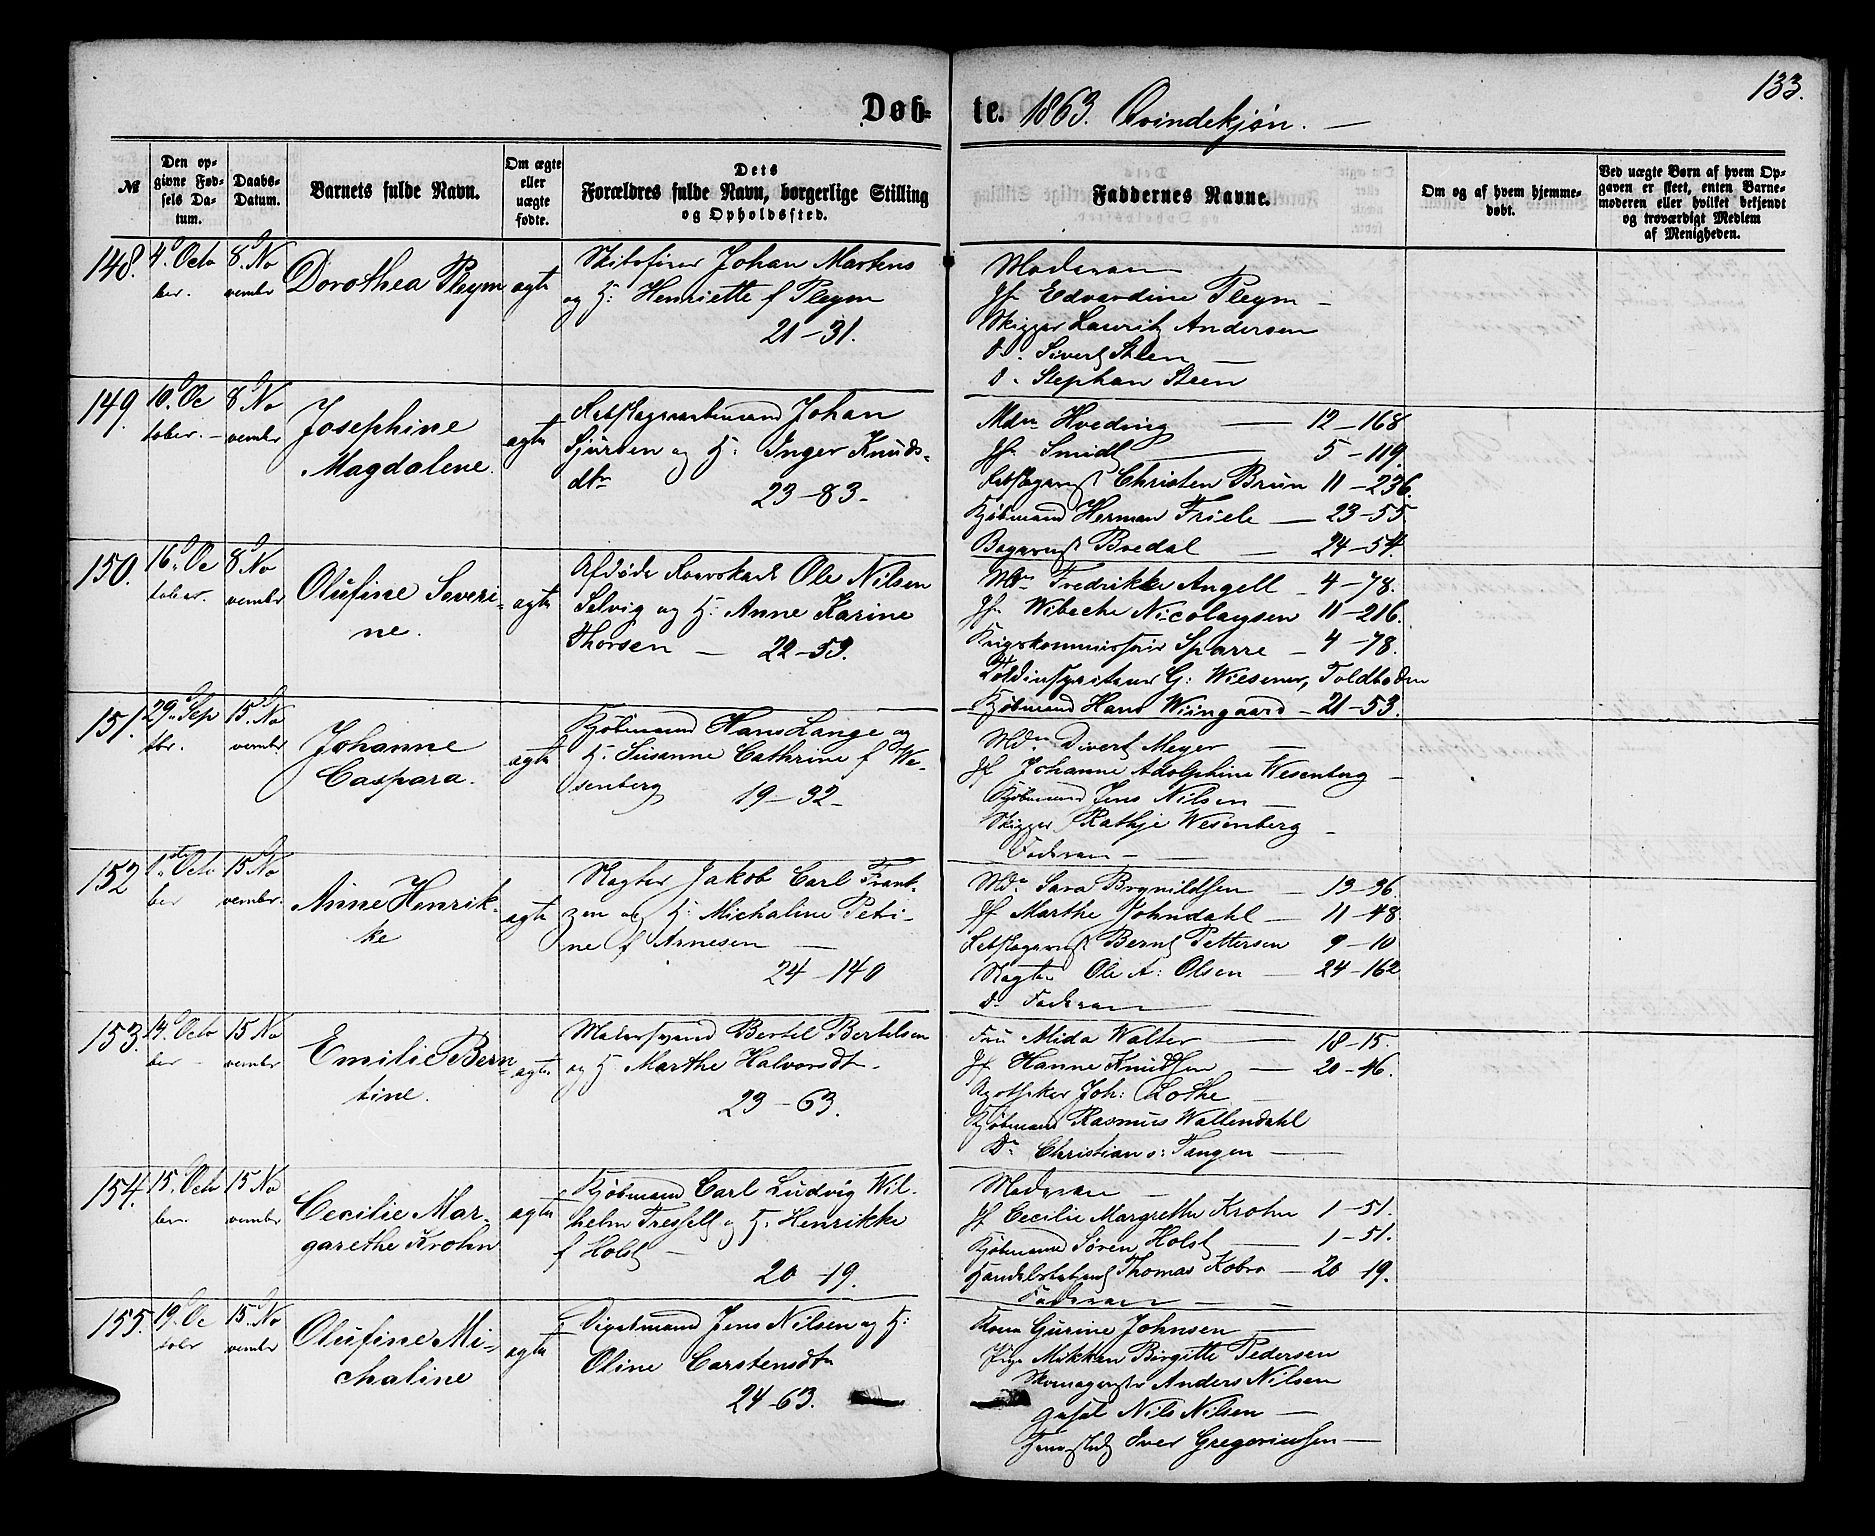 133.
Døb-te. 1863. Qvindekjøn. —
№
Den op-
givne Fød-
sels Da-
tum.
Daabs-
Datum.
Barnets fulde Navn.
Om ægte
eller
uægte
fødte.
Dets
Forældres fulde Navn, borgerlige Stilling
og Opholdssted.
Faddernes Navne.
Om og af hvem hjemme-
døbt.
Ved uægte Børn af hvem Op-
gaven er skeet, enten Barne-
moderen eller hvilket bekjendt
og troværdigt Medlem
af Menigheden.
148. 4. Octo
ber.
8. No
vembr
Dorothea Pleym
ægte
Skibsfører Johan Martens
og H: Henriette f Pleym
21-31.
Moderen
Jf. Edvardine Pleym —
Skipper Lauritz Andersen
D. Sivert Steen —
D. Stephan Steen
149. 10. Oc
tober. —
8. No
vembr
Josephine
Magdalene.
ægte
Johan
Sjursen og H: Inger Knuds-
dtr 23-83-
Mdm Hveding — 12-168
Jf. Smidt — 5-119.
Christen Brun 11-236.
Kjøbmand Herman Friele — 23-55.
Bagermst Bredal — 24-54.
150. 16. Oc
tober.
8. No
vembr
Olufine Severi-
ne.
ægte
Afdøde Ole Nilsen
Selvig og H: Anne Karine
Thorsen — 22-53.
Mdm Fredrikke Angell — 4-78.
Jf. Wibeche Nicolaysen 11-216.
Krigskommissair Sparre — 4-78.
G: Wiesener, Toldboden
Kjøbmand Hans Wiingaard — 21-53.
151. 29. Sep
tbr.
15. No
vembr.
Johanne
Caspara.
ægte
Kjøbmand Hans Lange og
H. Susanne Cathrine f We-
senberg 19-32-
Mdm Divert Meyer —
Jf Johanne Adolphine Wesenberg —
Kjøbmand Jens Nilsen —
Skipper Rathje Wesenberg —
Faderen —
152 1ste Octo
ber
15. No
vembr.
Anne Henrik-
ke
ægte
Slagter Jakob Carl Frant-
zen og H: Michaline Petri-
ne f Arnesen —
24-140
Md. Sara Brynildsen — 13-96.
Jf Marthe Johndahl — 11-48
Bernt Pettersen 9-10
Slagter Ole A: Olsen — 24-162
D. Faderen —
153. 14. Octo
ber -
15 No
vembr
Emilie Bern-
tine.
ægte
Malersvend Bertel Bertelsen
og H. Marthe Halvorsdtr.
23-63.
Fru Mida Walter — 18-15.
Jf Hanne Knudsen — 20-46.
Apotheker Joh: Lothe —
Kjøbmand Rasmus Wallendahl
Dr. Christian v: Tangen —
154. 15. Octo
ber.
15 No
vembr
Cecilie Mar-
garethe Krohn
ægte
Kjøbmand Carl Ludvig Wil-
helm Tressfelt og H: Henrikke
f Holst —
20-19.
Moderen —
Jf Cecilie Margrethe Krohn 1-51.
Kjøbmand Søren Holst — 1-51.
Thomas Kobro — 20-19.
Faderen —
155. 19. Oc
tobr
15. No
vembr
Olufine Mi-
chaline
ægte
Jens Nilsen og H:
Oline Carstensdtr
24-63.
Kone Gurine Johnsen —
Pige Mikken Birgitte Pedersen
Skomagersv Anders Nilsen
Nils Nilsen —
Iver Gregoriussen —